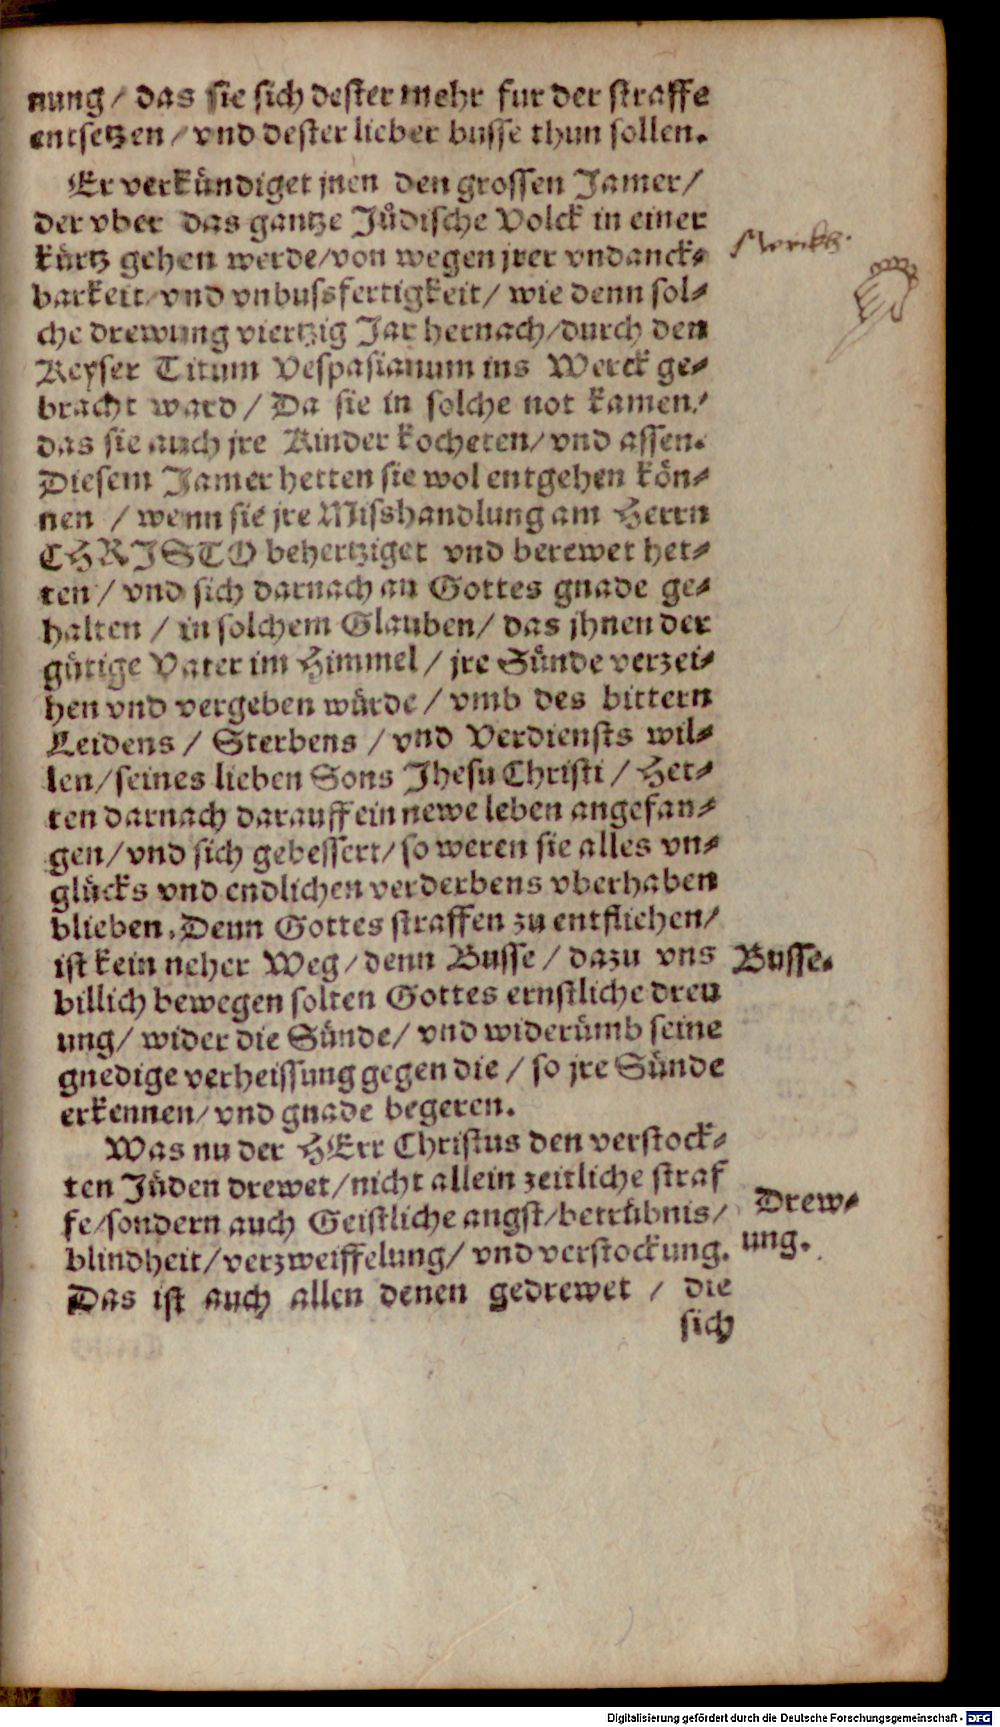 nung / das sie sich dester mehr fur der straffe
entsetzen / vnd dester lieber busse thun sollen.
Er verkündiget jnen den grossen Jamer /
der vber das gantze Jüdische Volck in einer
kürtz gehen werde / von wegen jrer vndanck⸗
barkeit / vnd vnbussfertigkeit / wie denn sol⸗
che drewung viertzig Jar hernach / durch den
Keyser Titum Vespasianum ins Werck ge⸗
bracht ward / Da sie in solche not kamen /
das sie auch jre Kinder kocheten / vnd assen.
Diesem Jamer hetten sie wol entgehen kön⸗
nen / wenn sie jre Misshandlung am Herrn
CHRISTO behertziget vnd berewet het⸗
ten / vnd sich darnach an Gottes gnade ge⸗
halten / in solchem Glauben / das jhnen der
gütige Vater im Himmel / jre Sünde verzei⸗
hen vnd vergeben würde / vmb des bittern
Leidens / Sterbens / vnd Verdiensts wil⸗
len / seines lieben Sons Jhesu Christi / Het⸗
ten darnach darauff ein newe leben angefan⸗
gen / vnd sich gebessert / so weren sie alles vn⸗
glücks vnd endlichen verderbens vberhaben
blieben. Denn Gottes straffen zu entfliehen /
ist kein neher Weg / denn Busse / dazu vns
billich bewegen solten Gottes ernstliche dreu
ung / wider die Sünde / vnd widerümb seine
gnedige verheissung gegen die / so jre Sünde
erkennen / vnd gnade begeren.
Was nu der HErr Christus den verstock⸗
ten Jüden drewet / nicht allein zeitliche straf
fe / sondern auch Geistliche angst / betrübnis /
blindheit / verzweiffelung / vnd verstockung.
Das ist auch allen denen gedrewet / die
sich
Busse.
Drew⸗
ung.
Digitalisierung gefördert durch die Deutsche Forschungsgemeinschaft - DFG